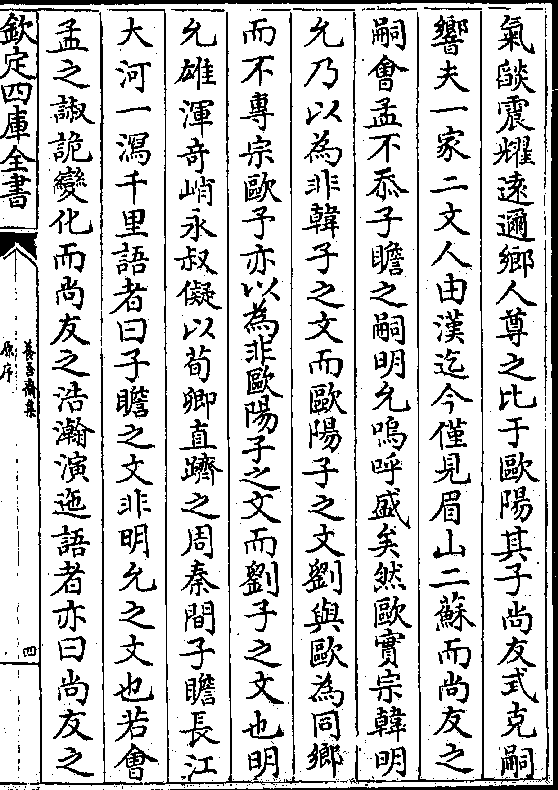 氣燄震耀遠邇鄉人尊之比于歐陽其子尚友式克嗣
響夫一家二文人由漢迄今僅見眉山二蘇而尚友之
嗣會孟不忝子瞻之嗣明允嗚呼盛矣然歐實宗韓明
允乃以為非韓子之文而歐陽子之文劉與歐為同鄉
而不專宗歐予亦以為非歐陽子之文而劉子之文也明
允雄渾奇峭永叔儗以荀卿直躋之周秦間子瞻長江
大河一瀉千里語者曰子瞻之文非明允之文也若會
孟之諔詭變化而尚友之浩瀚演迤語者亦曰尚友之
欽定四庫全書
養吾齋集
原序
四